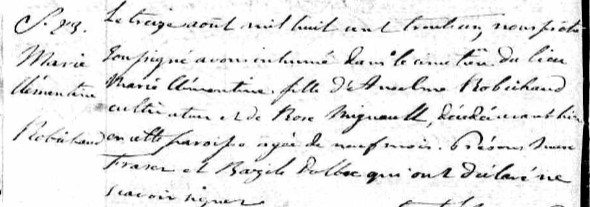 S. 93.
Marie
Clémentine
Robichaud
Le treize aout mil huit cent trente trois, nous prêtre
soussigné avons inhumé dans le cimetière du lieu
Marie Clémentine, fille d'Anselme Robichaud
cultivateur et de Rose Mignault, décédée avant hier
en cette paroisse agée de neuf mois. Présens
Fraser et Bazile Dolbec qui ont déclaré ne
savoir signer